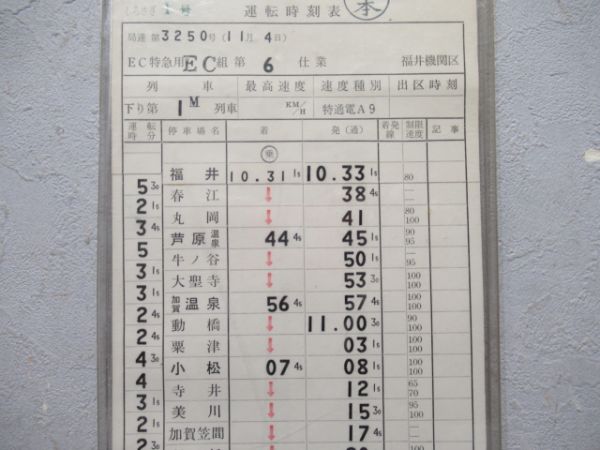 しらさぎ 1号 運転時刻表 本
局達第3250号(11月4日)
EC特急用EC組第 6 仕業 福井機関区
列車 最高速度 速度種別 出区時刻
下り第 1M 列車 KM/H 特通電A9
運転時分 停車場名 着 発(通) 着発線 制限速度 記事
乗
福井 10.31 1s 10.33 1s 80
5 30
春江 ↓ 38 4s —
2 1s
丸岡 ↓ 41 — 80
3 4s
芦原温泉 44 4s 45 1s 90 95
5
牛ノ谷 ↓ 50 1s — 95
3 1s
大聖寺 ↓ 53 30 100 100
3 1s
加賀温泉 56 4s 57 4s 100 100
2 4s
動橋 ↓ 11.00 30 90 100
2 4s
粟津 ↓ 03 1s 100 100
2 4s
小松 07 4s 08 1s 100 100
4 30
寺井 ↓ 12 1s 65 70
4
美川 ↓ 15 30 95 100
3 1s
加賀笠間 ↓ 17 4s
2 1s